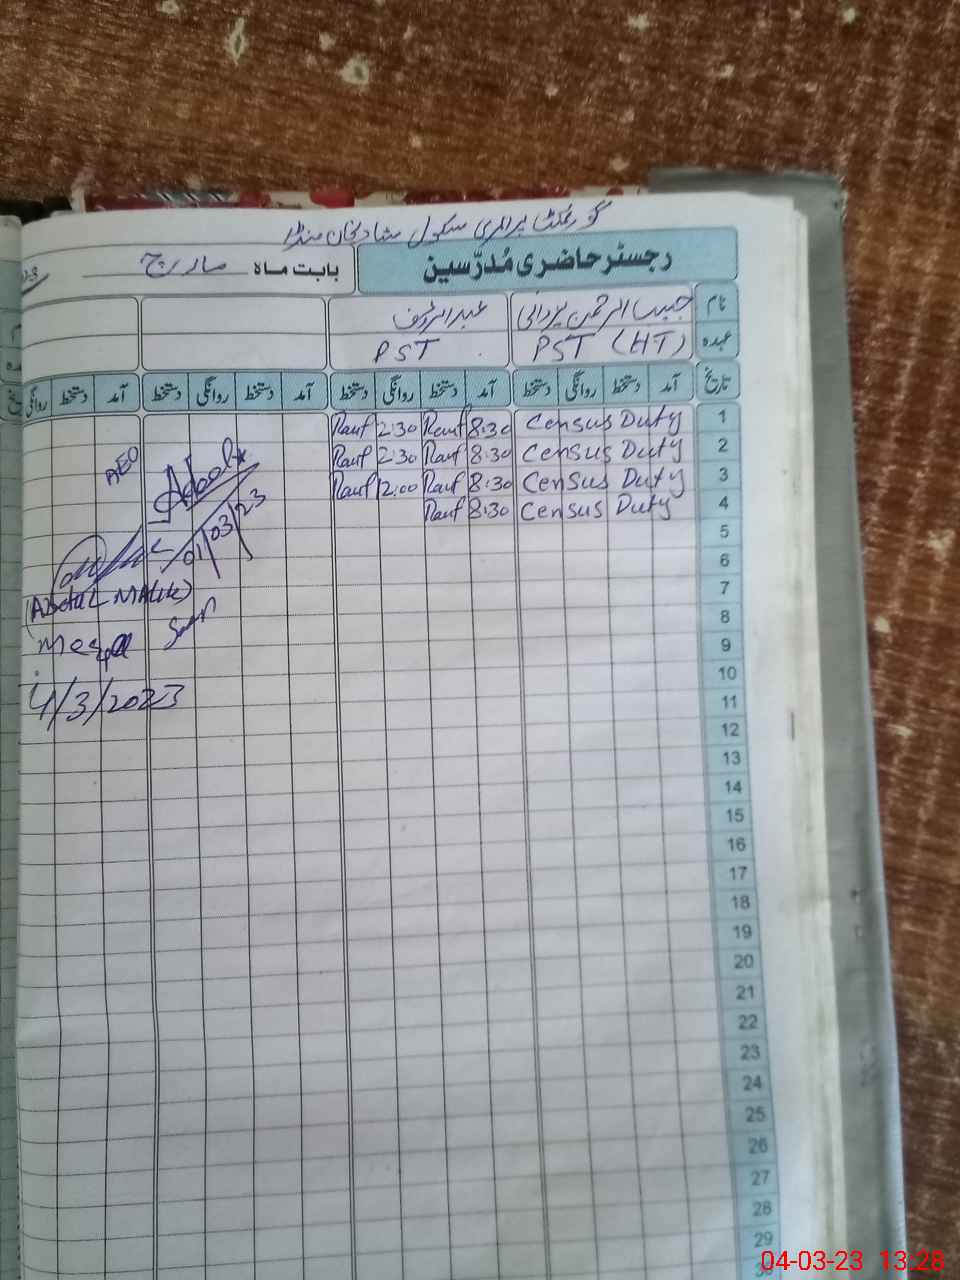 گورنمنٹ پرائمری سکول
رجسٹر حاضری مُدرّسین
بابت ماہ مارچ
نام حبیب الرحمن یزدانی عبدالرؤف
عہدہ PST (HT) PST
تاریخ آمد دستخط روانگی دستخط آمد دستخط روانگی دستخط آمد دستخط روانگی دستخط آمد دستخط روانگی
1 Census Duty 8:30 Rauf 2:30 Rauf
2 Census Duty 8:30 Rauf 2:30 Rauf
3 Census Duty 8:30 Rauf 12:00 Rauf
4 Census Duty 8:30 Rauf
5
6
7
8
9
10
11
12
13
14
15
16
17
18
19
20
21
22
23
24
25
26
27
28
29
AEO
01/03/23
(Abdul Malik)
4/3/2023
04-03-23 13:28